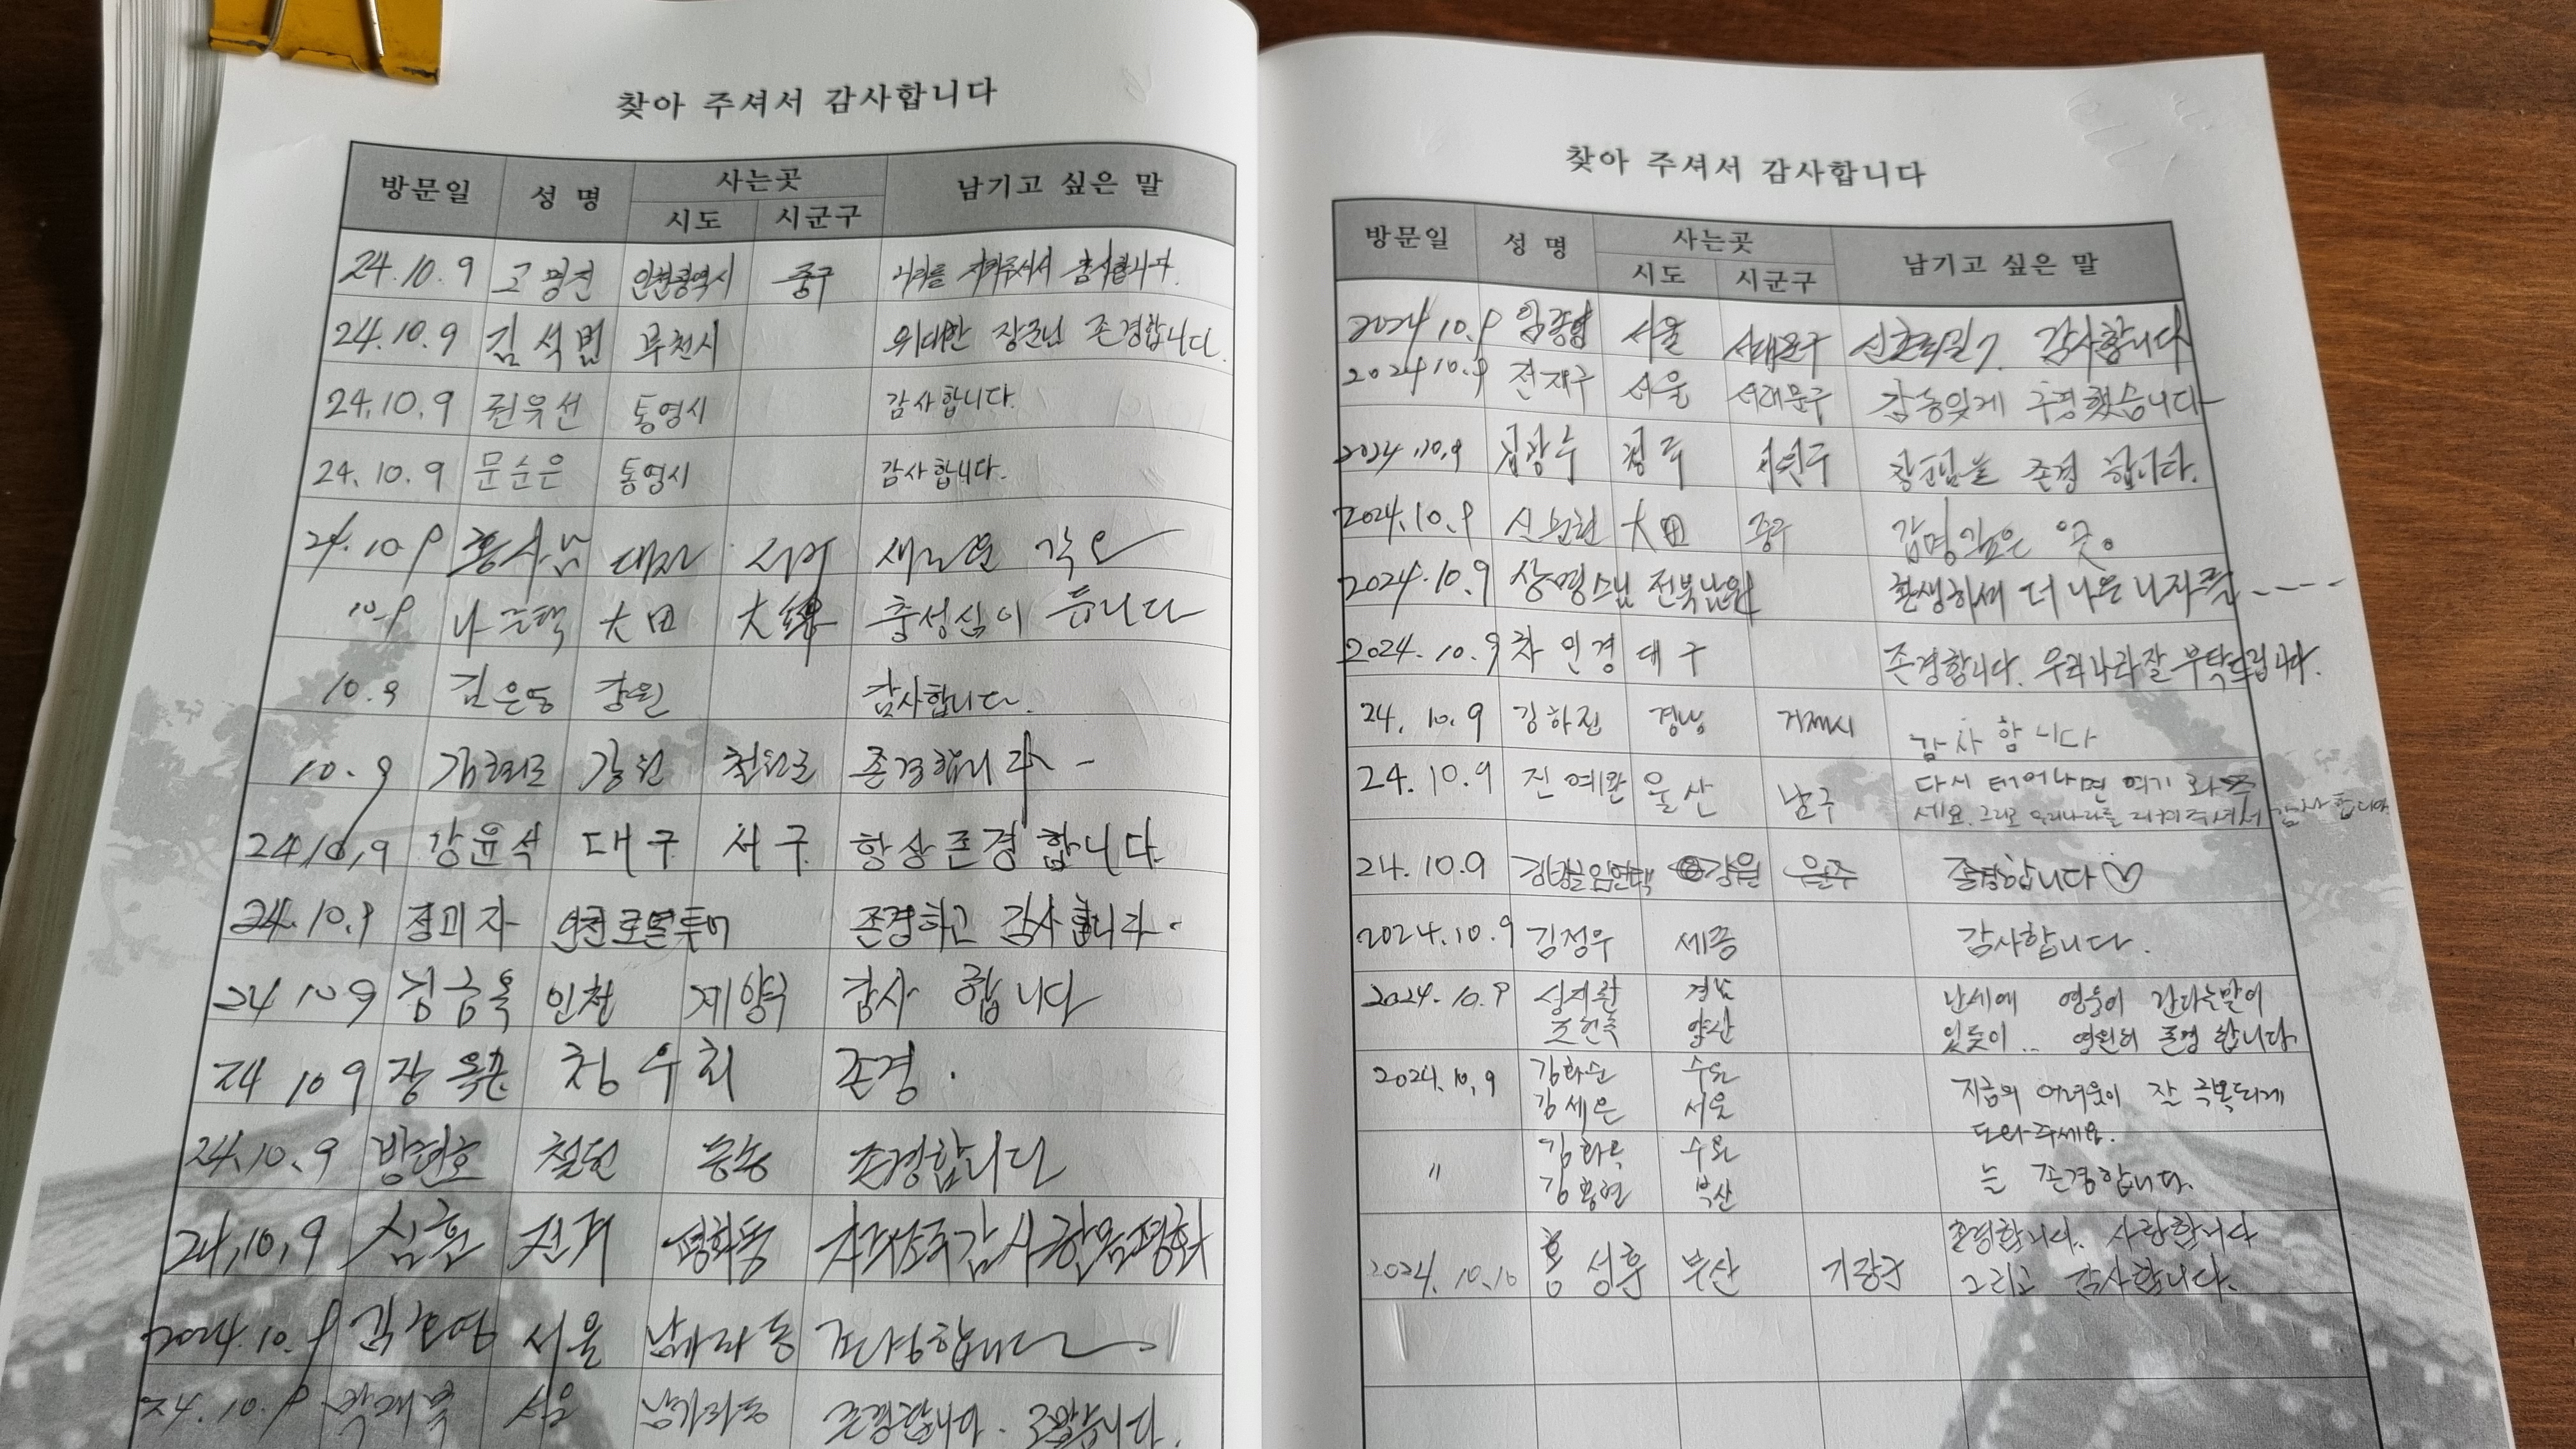 찾아 주셔서 감사합니다
방문일 성 명 사는곳 남기고 싶은 말
시도 시군구
24.10.9 고명진 인천광역시 중구 나라를 지켜주셔서 감사합니다.
24.10.9 김석범 부천시 위대한 장군님 존경합니다.
24.10.9 권유선 통영시 감사합니다.
24.10.9 문순은 통영시 감사합니다.
24.10.9 서구 새로운 각오
10.9 大田 충성심이 듭니다
10.9 김은동 강원 감사합니다.
10.9 강원 철원군 존경합니다
24.10.9 강윤석 대구 서구 항상 존경 합니다.
24.10.9 존경하고 감사합니다.
24 10 9 김금옥 인천 계양구 감사 합니다
24 10 9 청우회 존경.
24.10.9 방현호 철원 존경합니다
24.10.9 심훈 평화동
2024.10.9 서울
24.10.9 서울 존경합니다.
찾아 주셔서 감사합니다
방문일 성 명 사는곳 남기고 싶은 말
시도 시군구
2024 10.9 서울 서대문구 감사합니다
2024 10.9 전재구 서울 서대문구 감동있게 구경했습니다
2024.10.9 김창수 청주 서원구 장군님을 존경 합니다.
2024.10.9 大田 중구 감명깊은 곳。
2024.10.9 상명스님 전북남원 환생하셔 더 나은
2024.10.9 차인경 대구 존경합니다. 우리나라 잘 부탁드립니다.
24.10.9 김하진 경남 거제시 감사합니다
24.10.9 진예완 울산 남구 다시 태어나면 여기 와주
세요. 그리고 우리나라를 지켜주셔서 감사합니다
24.10.9 강원 존경합니다♡
2024.10.9 김정우 세종 감사합니다.
2024.10.9 경남 난세에 영웅이 난다는말이
양산 있듯이.. 영원히 존경 합니다.
2024.10.9 김화순 수원
김세은 서울 지금의 어려움이 잘 극복되게
도와주세요.
〃 김화옥 수원
부산 는 존경합니다.
2024.10.10 홍성훈 부산 기장군 존경합니다. 사랑합니다
그리고 감사합니다.